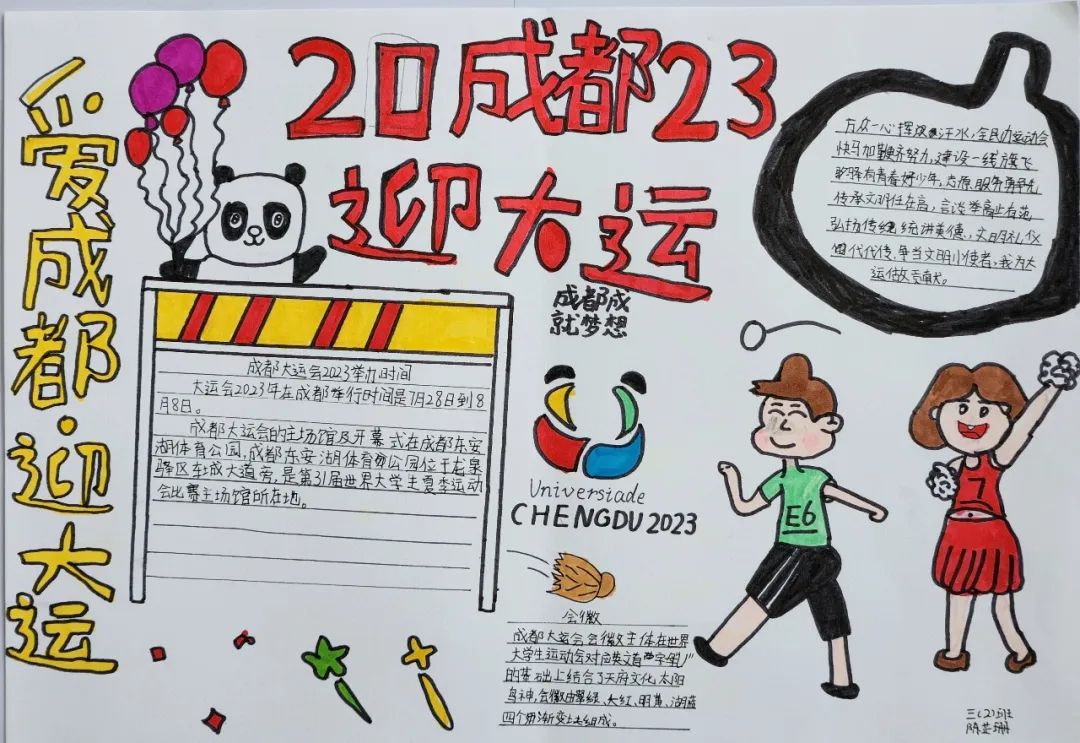 20成都23
迎大运
爱成都·迎大运
成都成
就梦想
Universiade
CHENGDU 2023
成都大运会2023举办时间
大运会2023年在成都举行时间是7月28日到8
月8日。
成都大运会的主场馆及开幕式在成都东安
湖体育公园,成都东安湖体育公园位于龙泉
驿区车城大道旁,是第31届世界大学生夏季运动
会比赛主场馆所在地。
万众一心挥汗水,全民办运动会
快马加鞭齐努力,建设一线旗飞
有青春好少年,志愿服务勇争先
传承文明任在肩,言谈举止有范
弘扬传统讲美德,文明礼仪
代代传,争当文明小使者,我为大
运做贡献。
E6
7
会徽
成都大运会会徽主体在世界
大学生运动会对应英文首字母"U"
的基础上结合了天府文化太阳
鸟神,会徽由翠绿、大红、明黄、湖蓝
四个渐变色组成。
三(2)班
陈芷珊